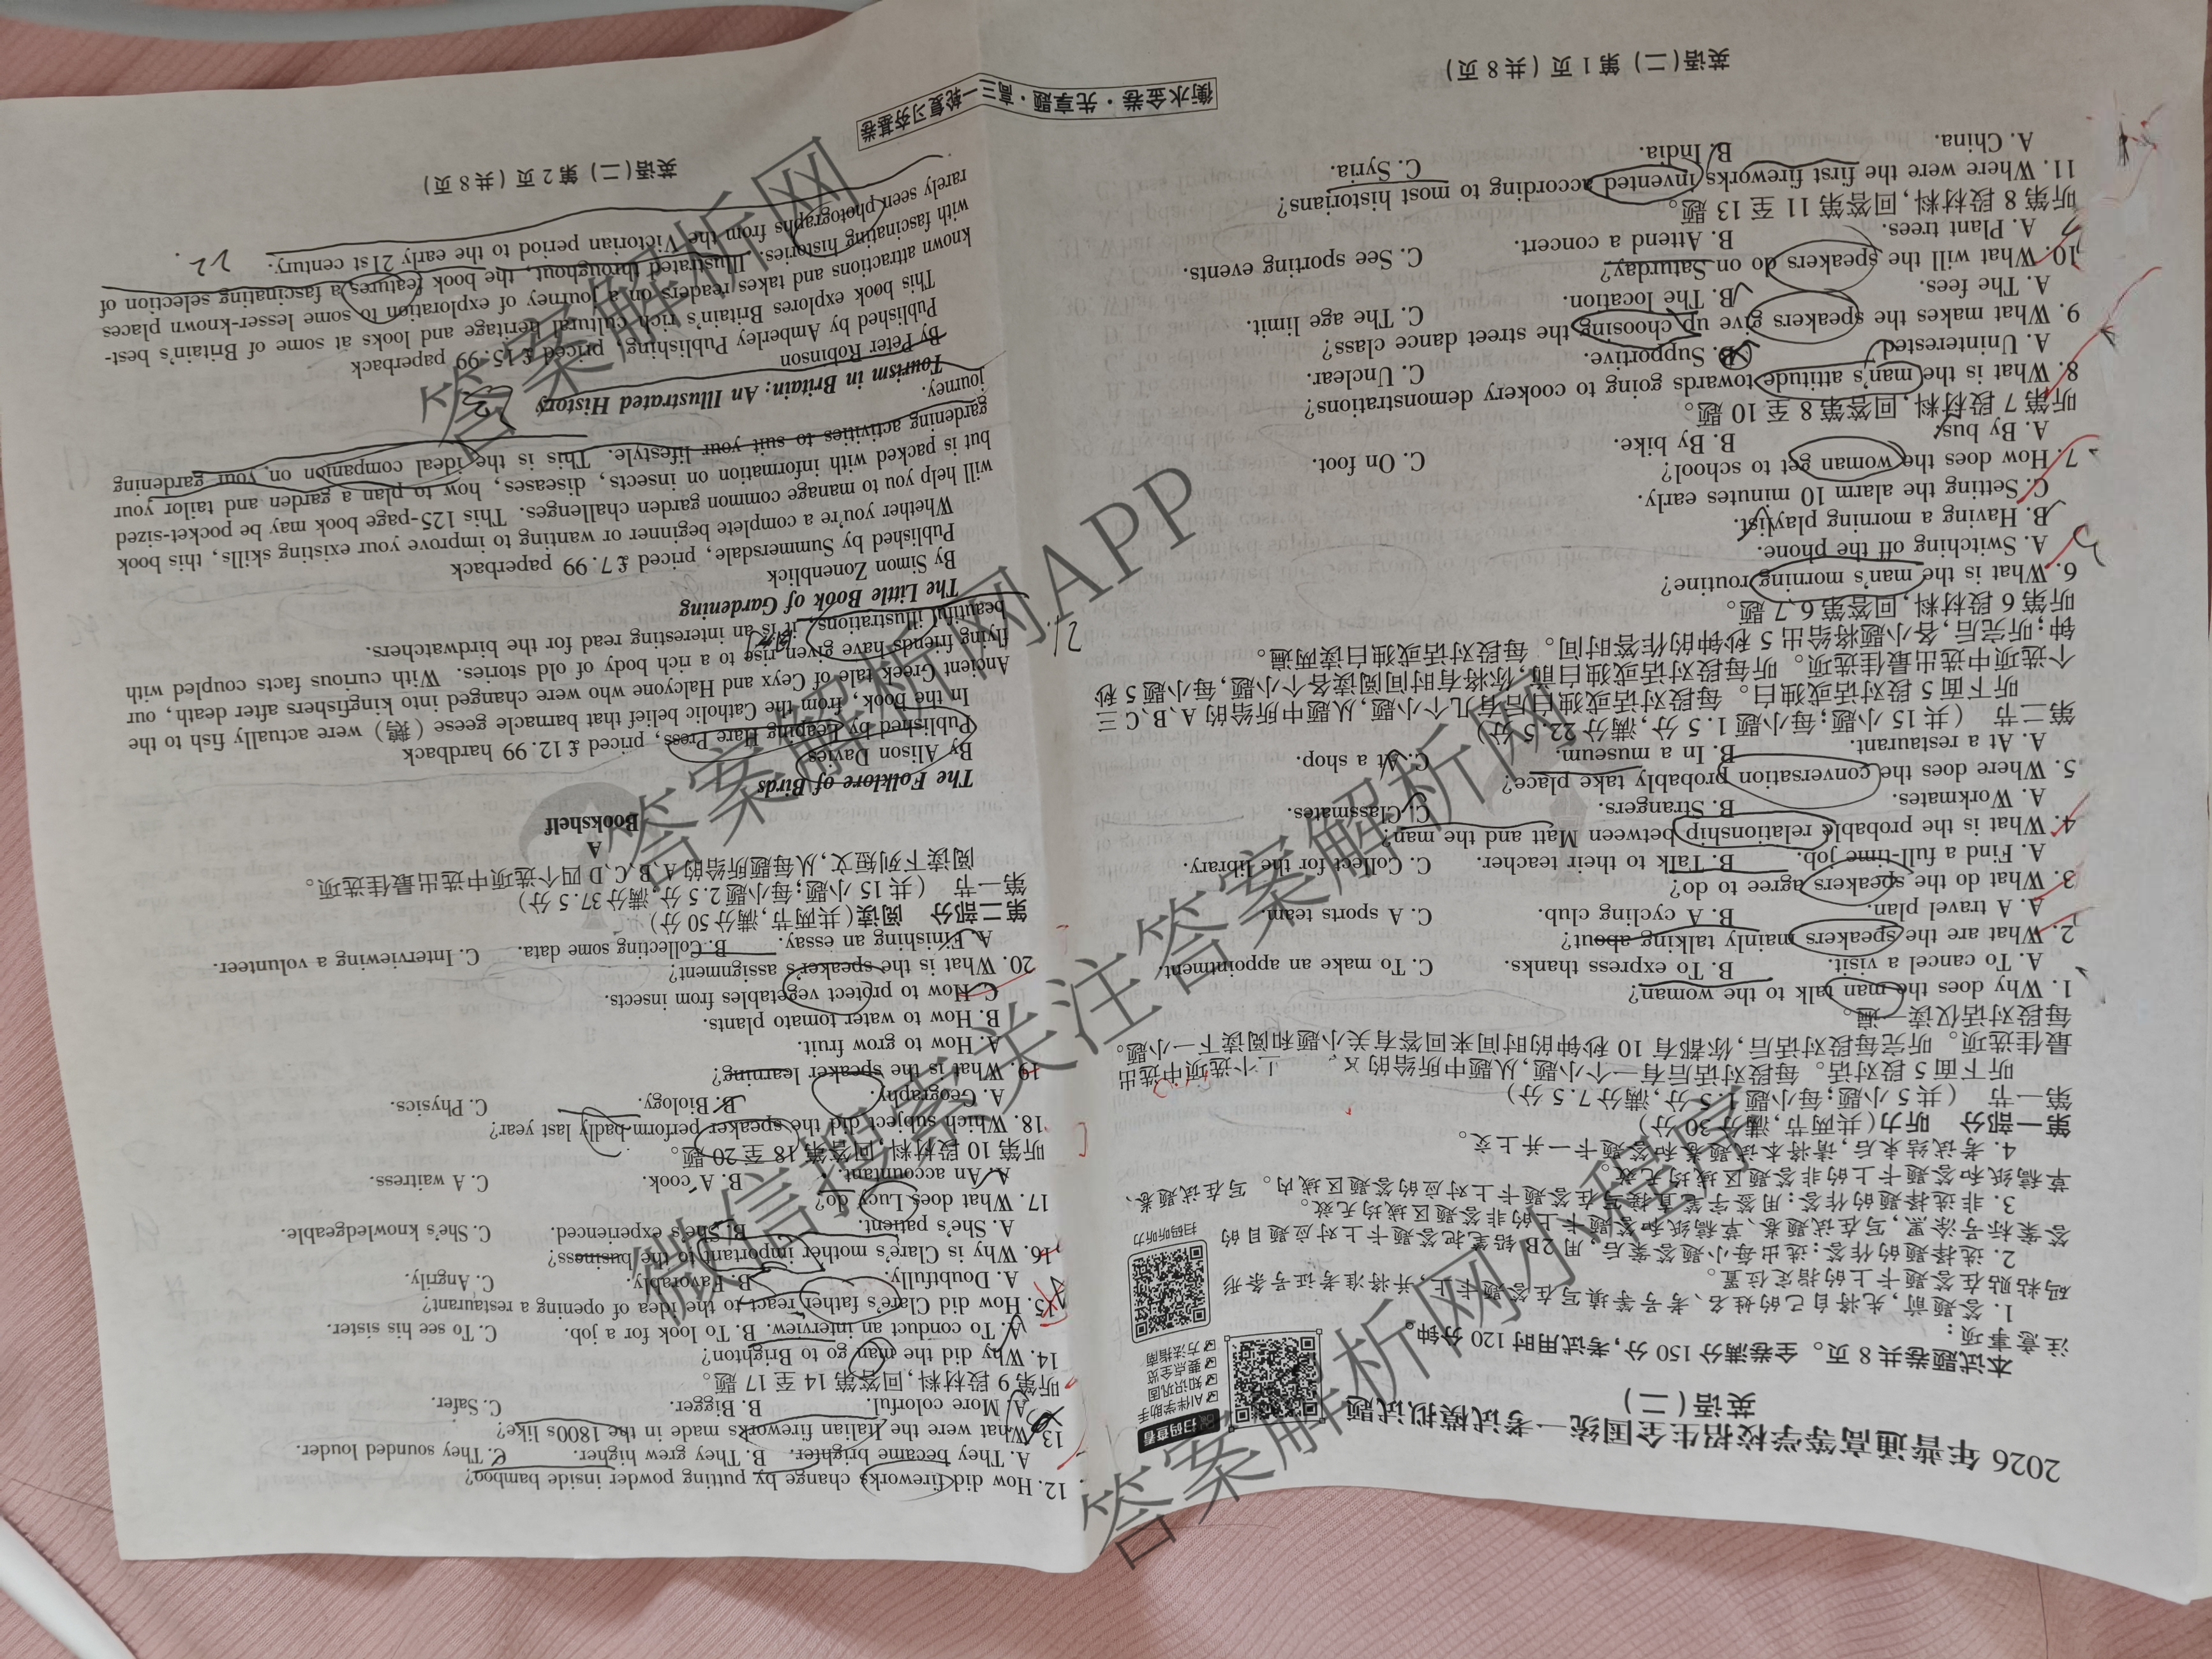 2026 年普通高等学校招生全国统一考试模拟试题
英语(二)
本试题卷共 8 页。全卷满分 150 分,考试用时 120 分钟。
注意事项:
1. 答题前,先将自己的姓名、考号等填写在答题卡上,并将准考证号条形
码粘贴在答题卡上的指定位置。
2. 选择题的作答:选出每小题答案后,用2B铅笔把答题卡上对应题目的
答案标号涂黑,写在试题卷、草稿纸和答题卡上的非答题区域均无效。
3. 非选择题的作答:用签字笔直接写在答题卡上对应的答题区域内。写在试题卷、
草稿纸和答题卡上的非答题区域均无效。
4. 考试结束后,请将本试题卷和答题卡一并上交。
扫码查看
AI伴学助手
知识巩固
要点全览
方法指南
扫码听听力
第一部分 听力(共两节,满分 30 分)
第一节 (共 5 小题;每小题 1.5 分,满分 7.5 分)
听下面 5 段对话。每段对话后有一个小题,从题中所给的 个选项中选出
最佳选项。听完每段对话后,你都有 10 秒钟的时间来回答有关小题和阅读下一小题。
每段对话仅读一遍。
1. Why does the man talk to the woman?
A. To cancel a visit. B. To express thanks. C. To make an appointment.
2. What are the speakers mainly talking about?
A. A travel plan. B. A cycling club. C. A sports team.
3. What do the speakers agree to do?
A. Find a full-time job. B. Talk to their teacher. C. Collect for the library.
4. What is the probable relationship between Matt and the man?
A. Workmates. B. Strangers. C. Classmates.
5. Where does the conversation probably take place?
A. At a restaurant. B. In a museum. C. At a shop.
第二节 (共 15 小题;每小题 1.5 分,满分 22.5 分)
听下面 5 段对话或独白。每段对话或独白后有几个小题,从题中所给的 A、B、C 三
个选项中选出最佳选项。听每段对话或独白前,你将有时间阅读各个小题,每小题 5 秒
钟;听完后,各小题将给出 5 秒钟的作答时间。每段对话或独白读两遍。
听第 6 段材料,回答第 6、7 题。
6. What is the man's morning routine?
A. Switching off the phone.
B. Having a morning playlist.
C. Setting the alarm 10 minutes early.
7. How does the woman get to school?
A. By bus. B. By bike. C. On foot.
听第 7 段材料,回答第 8 至 10 题。
8. What is the man's attitude towards going to cookery demonstrations?
A. Uninterested. B. Supportive. C. Unclear.
9. What makes the speakers give up choosing the street dance class?
A. The fees. B. The location. C. The age limit.
10. What will the speakers do on Saturday?
A. Plant trees. B. Attend a concert. C. See sporting events.
听第 8 段材料,回答第 11 至 13 题。
11. Where were the first fireworks invented according to most historians?
A. China. B. India. C. Syria.
英语(二) 第 1 页 (共 8 页)
衡水金卷·先享题·高三一轮复习夯基卷
12. How did fireworks change by putting powder inside bamboo?
A. They became brighter. B. They grew higher. C. They sounded louder.
13. What were the Italian fireworks made in the 1800s like?
A. More colorful. B. Bigger. C. Safer.
听第 9 段材料,回答第 14 至 17 题。
14. Why did the man go to Brighton?
A. To conduct an interview. B. To look for a job. C. To see his sister.
15. How did Clare's father react to the idea of opening a restaurant?
A. Doubtfully. B. Favorably. C. Angrily.
16. Why is Clare's mother important to the business?
A. She's patient. B. She's experienced. C. She's knowledgeable.
17. What does Lucy do?
A. An accountant. B. A cook. C. A waitress.
听第 10 段材料,回答第 18 至 20 题。
18. Which subject did the speaker perform badly last year?
A. Geography. B. Biology. C. Physics.
19. What is the speaker learning?
A. How to grow fruit.
B. How to water tomato plants.
C. How to protect vegetables from insects.
20. What is the speaker's assignment?
A. Finishing an essay. B. Collecting some data. C. Interviewing a volunteer.
第二部分 阅读(共两节,满分 50 分)
第一节 (共 15 小题;每小题 2.5 分,满分 37.5 分)
阅读下列短文,从每题所给的 A、B、C、D 四个选项中选出最佳选项。
A
Bookshelf
The Folklore of Birds
By Alison Davies
Published by Leaping Hare Press, priced £12.99 hardback
In the book, from the Catholic belief that barnacle geese (鹅) were actually fish to the
Ancient Greek tale of Ceyx and Halcyone who were changed into kingfishers after death, our
flying friends have given rise to a rich body of old stories. With curious facts coupled with
beautiful illustrations, it is an interesting read for the birdwatchers.
21.
The Little Book of Gardening
By Simon Zonenblick
Published by Summersdale, priced £7.99 paperback
Whether you're a complete beginner or wanting to improve your existing skills, this book
will help you to manage common garden challenges. This 125-page book may be pocket-sized
but is packed with information on insects, diseases, how to plan a garden and tailor your
gardening activities to suit your lifestyle. This is the ideal companion on your gardening
journey.
23
Tourism in Britain: An Illustrated History
By Peter Robinson
Published by Amberley Publishing, priced £15.99 paperback
This book explores Britain's rich cultural heritage and looks at some of Britain's best-
known attractions and takes readers on a journey of exploration to some lesser-known places
with fascinating histories. Illustrated throughout, the book features a fascinating selection of
rarely seen photographs from the Victorian period to the early 21st century.
22.
英语(二) 第 2 页 (共 8 页)
微信搜索关注答案解析网APP
答案解析网
答案解析网小程序